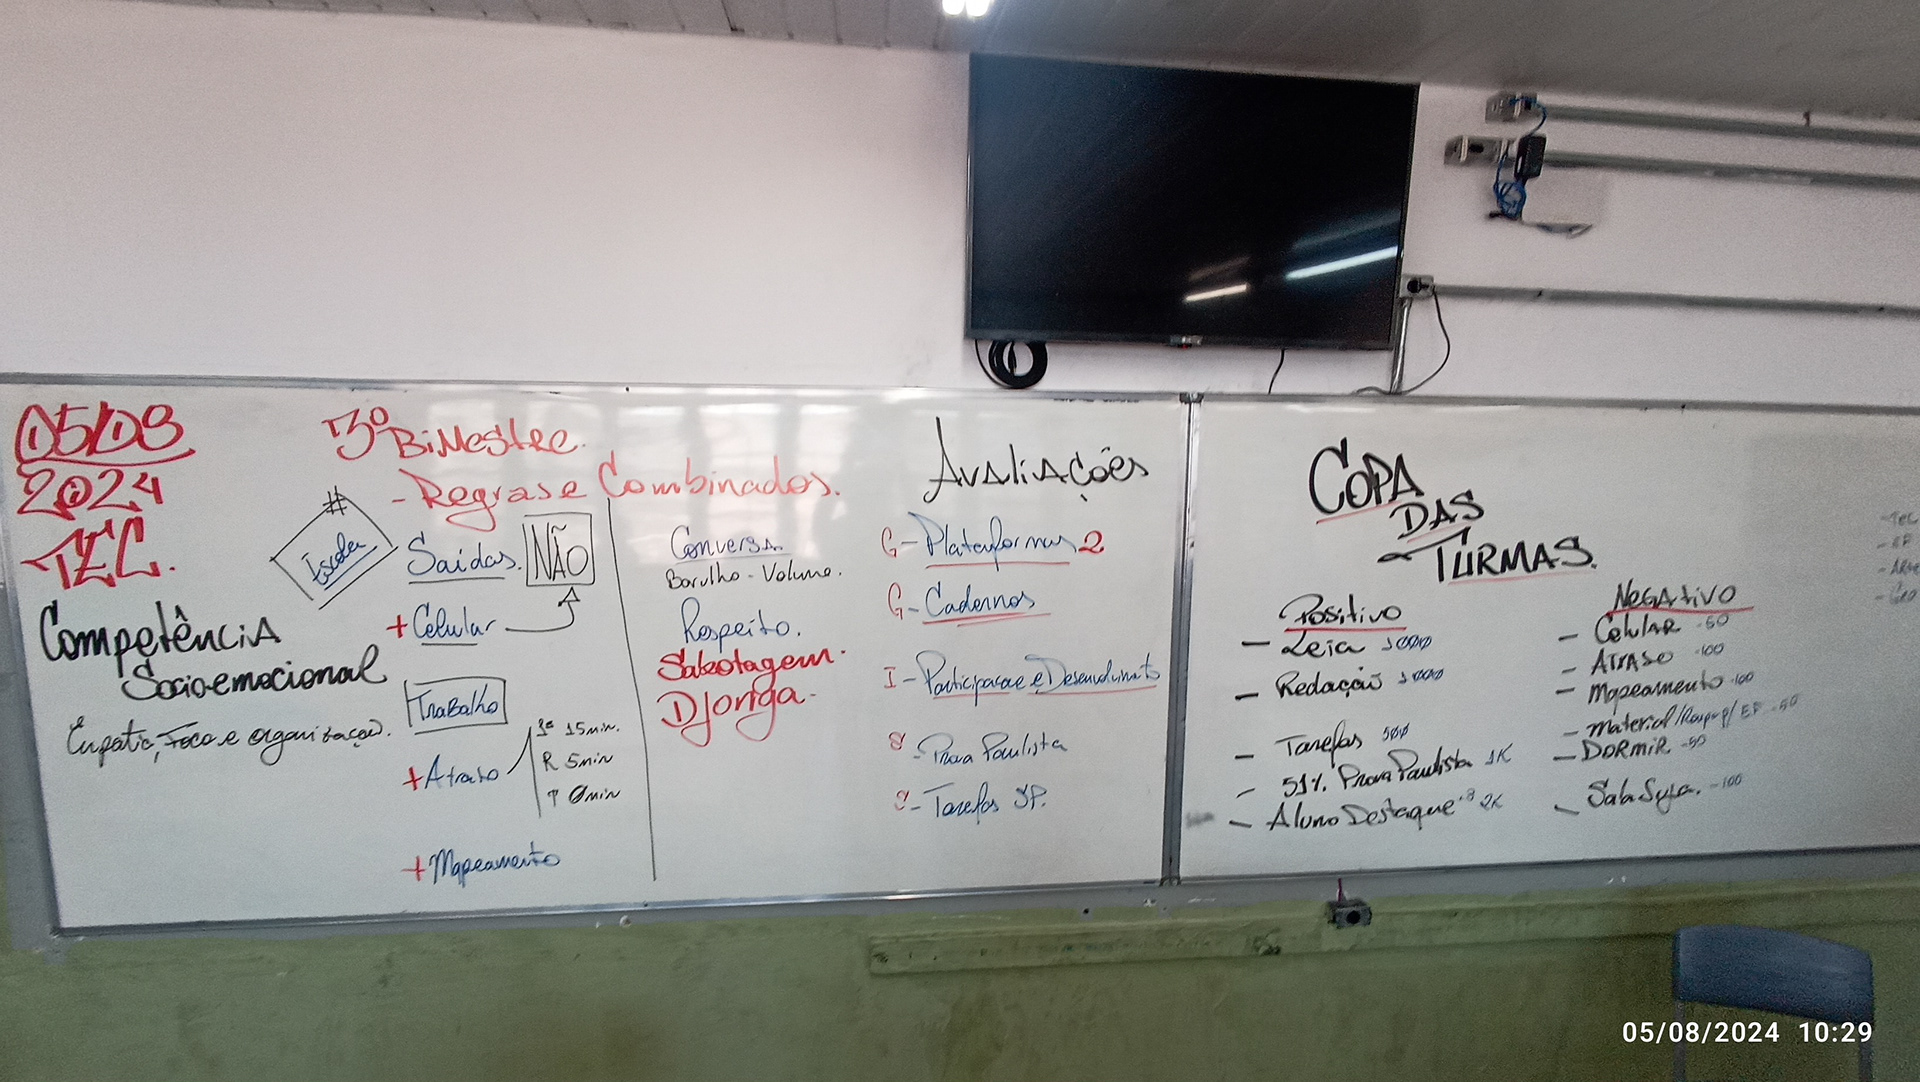 05/08
2024
TEC.
Competência
Socioemocional
Empatia, Foco e organização.
3º Bimestre.
- Regras e Combinados.
#
Escola
Saídas.
NÃO
+ Celular
Trabalho
+ Atraso
1ª 15min.
R 5min
T 0min
+ Mapeamento
Conversa
Barulho - Volume.
Respeito.
Sabotagem.
Djonga.
Avaliações
G - Plataformas 2
G - Cadernos
I - Participacao e Desenvolvimento
S - Prova Paulista
S - Tarefas SP.
COPA
DAS
TURMAS.
Positivo
- Leia 1000
- Redação 1000
- Tarefas 500
- 51% Prova Paulista 1K
- Aluno Destaque 2K
Negativo
- Celular -50
- Atraso -100
- Mapeamento -100
- Material / EF -50
- Dormir -50
- Sala Suja. -100
- Tec
- EF
- Arte
- Geo
05/08/2024 10:29